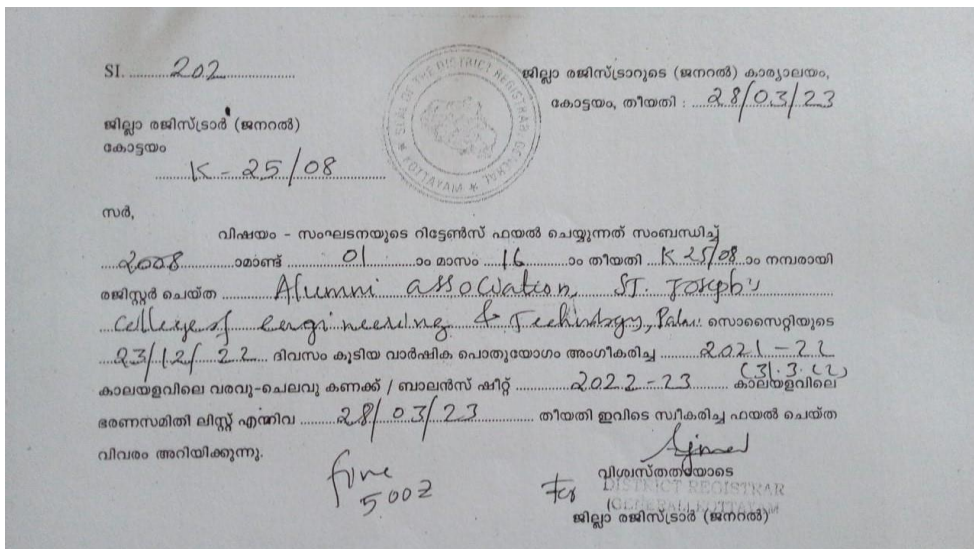 SI. ........202..............
ജില്ലാ രജിസ്ട്രാറുടെ (ജനറൽ) കാര്യാലയം,
കോട്ടയം, തീയതി : ..28/03/23
SEAL OF THE DISTRICT REGISTRAR GENERAL * KOTTAYAM *
ജില്ലാ രജിസ്ട്രാർ (ജനറൽ)
കോട്ടയം
K - 25/08
സർ,
വിഷയം - സംഘടനയുടെ റിട്ടേൺസ് ഫയൽ ചെയ്യുന്നത് സംബന്ധിച്ച്
2008 ാമാണ്ട് 01 ാം മാസം 16 ാം തീയതി K 25/08 ാം നമ്പരായി
രജിസ്റ്റർ ചെയ്ത Alumni association, ST. Joseph's
College of engineering & Technology, Palai സൊസൈറ്റിയുടെ
23/12/22 ദിവസം കൂടിയ വാർഷിക പൊതുയോഗം അംഗീകരിച്ച 2021-22
(31.3.22)
കാലയളവിലെ വരവു-ചെലവു കണക്ക് / ബാലൻസ് ഷീറ്റ് 2022-23 കാലയളവിലെ
ഭരണസമിതി ലിസ്റ്റ് എന്നിവ 28/03/23 തീയതി ഇവിടെ സ്വീകരിച്ച ഫയൽ ചെയ്ത
വിവരം അറിയിക്കുന്നു.
fine
വിശ്വസ്തതയോടെ
For DISTRICT REGISTRAR
(GENERAL) KOTTAYAM
ജില്ലാ രജിസ്ട്രാർ (ജനറൽ)